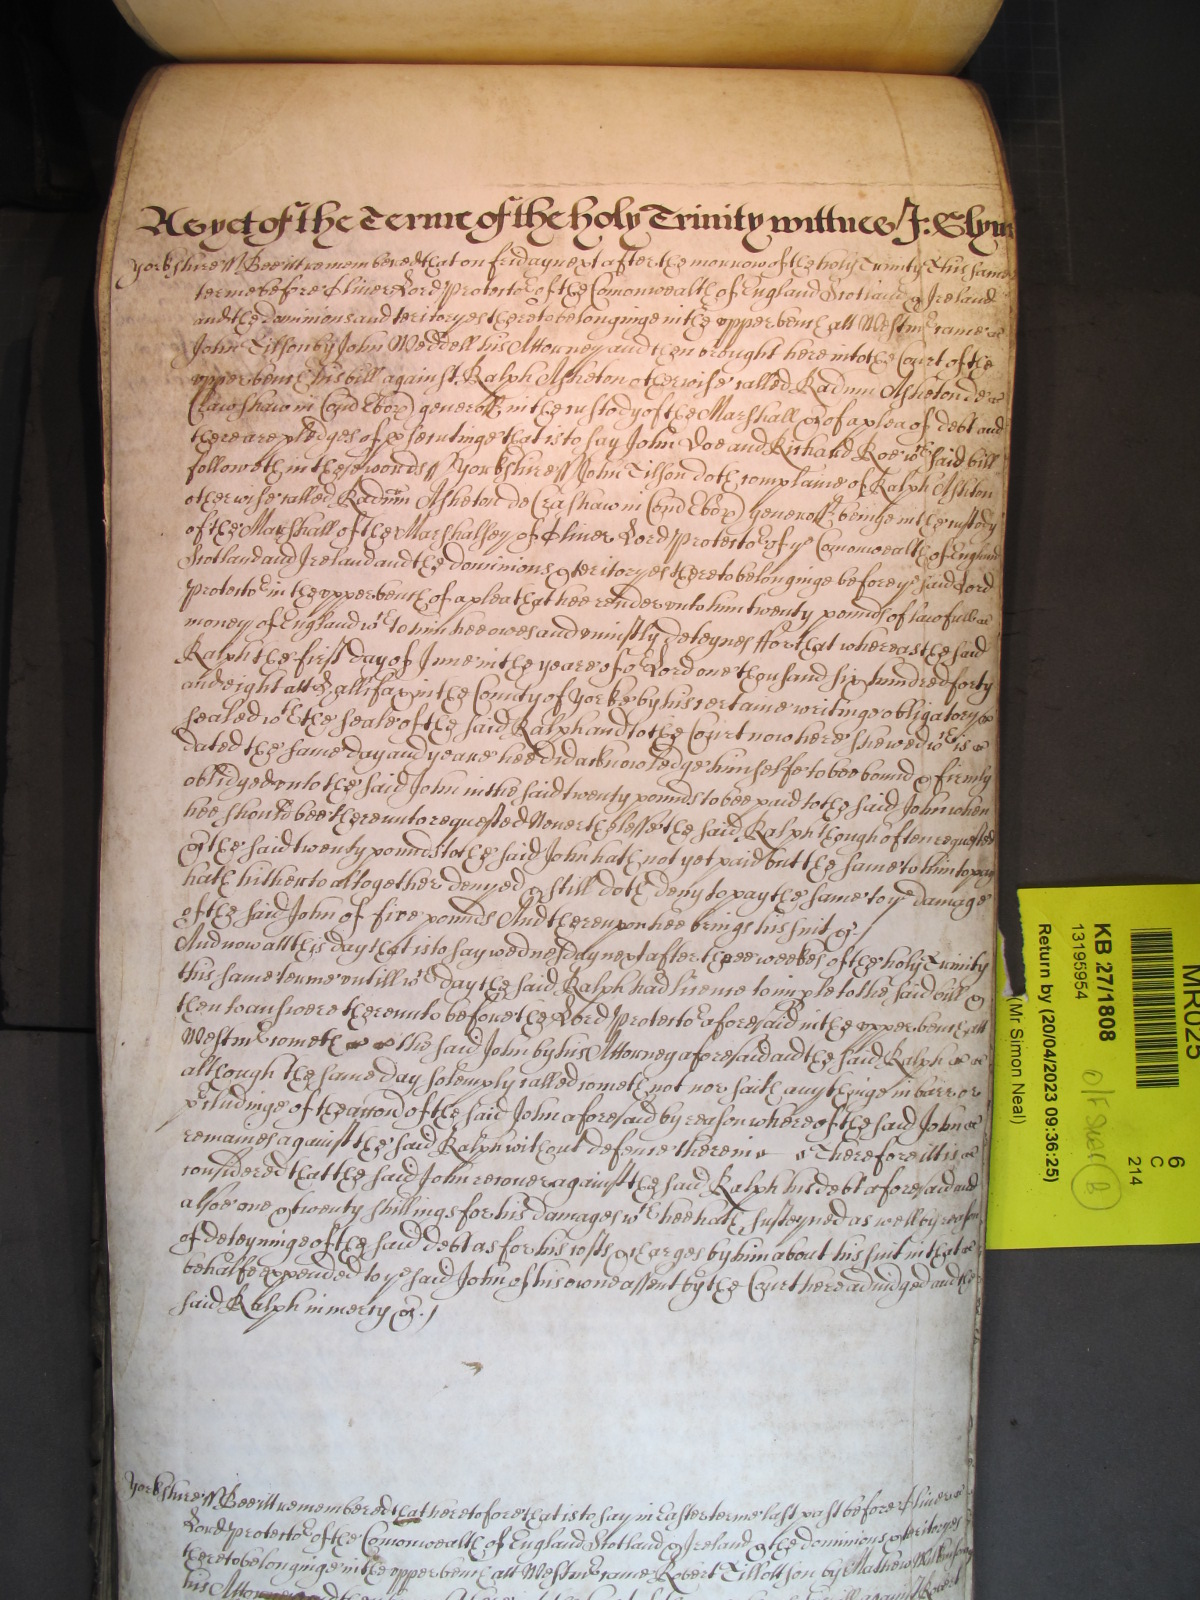 As yet of the Terme of the holy Trinity wittnes J: Glyn
Yorkshire ss Bee itt remembered that on friday next after the morrow of the holy Trinity this same
terme before Oliver Lord Protector of the Comonwealth of England Scotland & Ireland
and the dominions and territoryes thereto belonginge in the upper bench att Westmr came
John Tilson by John Weddell his Attorney and then brought here into the Court of the
upper bench his bill against Ralph Asheton otherwise called Radum Asheton de
Crawshaw in Com Ebor geneross in the custody of the Marshall &c of a plea of debt and
there are pledges of prosecutinge that is to say John Doe and Richard Roe wch said bill
followeth in these words ss Yorkshire ss John Tilson doth complaine of Ralph Asheton
otherwise called Radum Asheton de Crashaw in Com Ebor geneross beinge in the custody
of the Marshall of the Marshalsey of Oliver Lord Protector of ye Comonwealth of England
Scotland and Ireland and the dominions & territoryes thereto belonginge before ye said Lord
Protector in the upper bench of a plea that hee render unto him twenty pounds of lawfull
money of England wch to him hee owes and uniustly deteynes ffor that whereas the said
Ralph the first day of June in the yeare of or Lord one thousand six hundred forty
and eight att Hallifax in the County of Yorke by his certaine writinge obligatory
sealed wth the seale of the said Ralph and to the Court now here shewed wch is
dated the same day and yeare hee did acknowledge himselfe to bee bound & firmly
obliged unto the said John in the said twenty pounds to bee paid to the said John when
hee should bee thereunto requested Neverthelesse the said Ralph though often requested
&c the said twenty pounds to the said John hath not yet paid but the same to him to pay
hath hitherto altogether denyed & still doth deny to pay the same to ye damage
of the said John of five pounds And thereupon hee brings his suit &c
And now att this day that is to say wednesday next after three weekes of the holy Trinity
this same terme untill wch day the said Ralph had licence to imple to the said bill &
then to answere thereunto before the Lord Protector aforesaid in the upper bench att
Westmr cometh the said John by his Attorney aforesaid and the said Ralph
although the same day solemply called cometh not nor saith any thinge in barr or
precludinge of the accon of the said John aforesaid by reason whereof the said John
remaines against the said Ralph without defence therein Therefore itt is
considered that the said John recover against the said Ralph his debt aforesaid and
alsoe one & twenty shillings for his damages wch hee hath susteyned as well by reason
of deteyninge of the said debt as for his costs & charges by him about his suit in that
behalfe expended to ye said John of his owne assent by the Court here adiudged and the
said Ralph in mercy &c.
Yorkshire ss Bee itt remembered that heretofore that is to say in Easter terme last past before Oliver
Lord Protector of the Comonwealth of England Scotland & Ireland & the dominions & territoryes
thereto belonginge in the upper bench att Westmr came Robert Tillottson by Mathew
his Attorney and
MR025
6
C
214
KB 27/1808
13195954
Return by (20/04/2023 09:36:25)
(Mr Simon Neal)